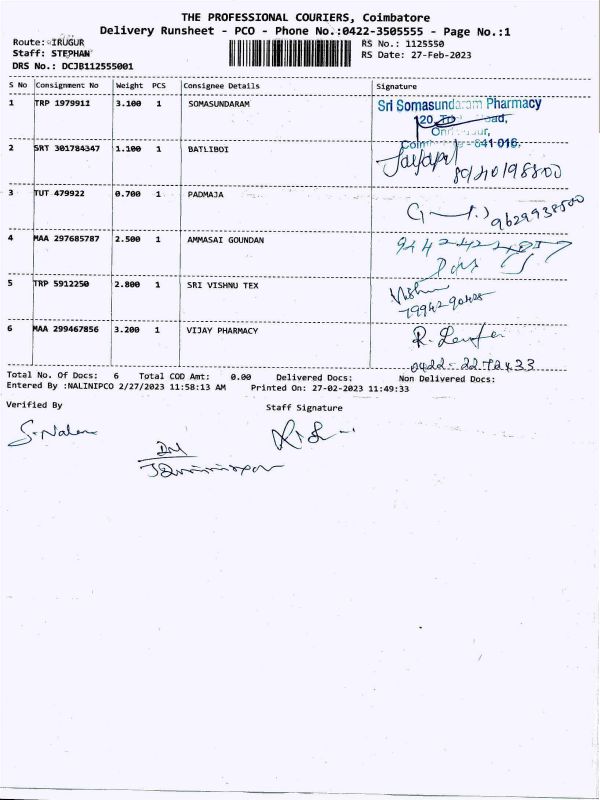 THE PROFESSIONAL COURIERS, Coimbatore
Delivery Runsheet - PCO - Phone No.:0422-3505555 - Page No.:1
Route: IRUGUR RS No.: 1125550
Staff: STEPHAN RS Date: 27-Feb-2023
DRS No.: DCJB112555001
S No Consignment No Weight PCS Consignee Details Signature
1 TRP 1979911 3.100 1 SOMASUNDARAM
Sri Somasundaram Pharmacy
2 SRT 301784347 1.100 1 BATLIBOI
3 TUT 479922 0.700 1 PADMAJA
9629938500
4 MAA 297685787 2.500 1 AMMASAI GOUNDAN
5 TRP 5912250 2.800 1 SRI VISHNU TEX
6 MAA 299467856 3.200 1 VIJAY PHARMACY
Total No. Of Docs: 6 Total COD Amt: 0.00 Delivered Docs: Non Delivered Docs:
Entered By :NALINIPCO 2/27/2023 11:58:13 AM Printed On: 27-02-2023 11:49:33
Verified By Staff Signature